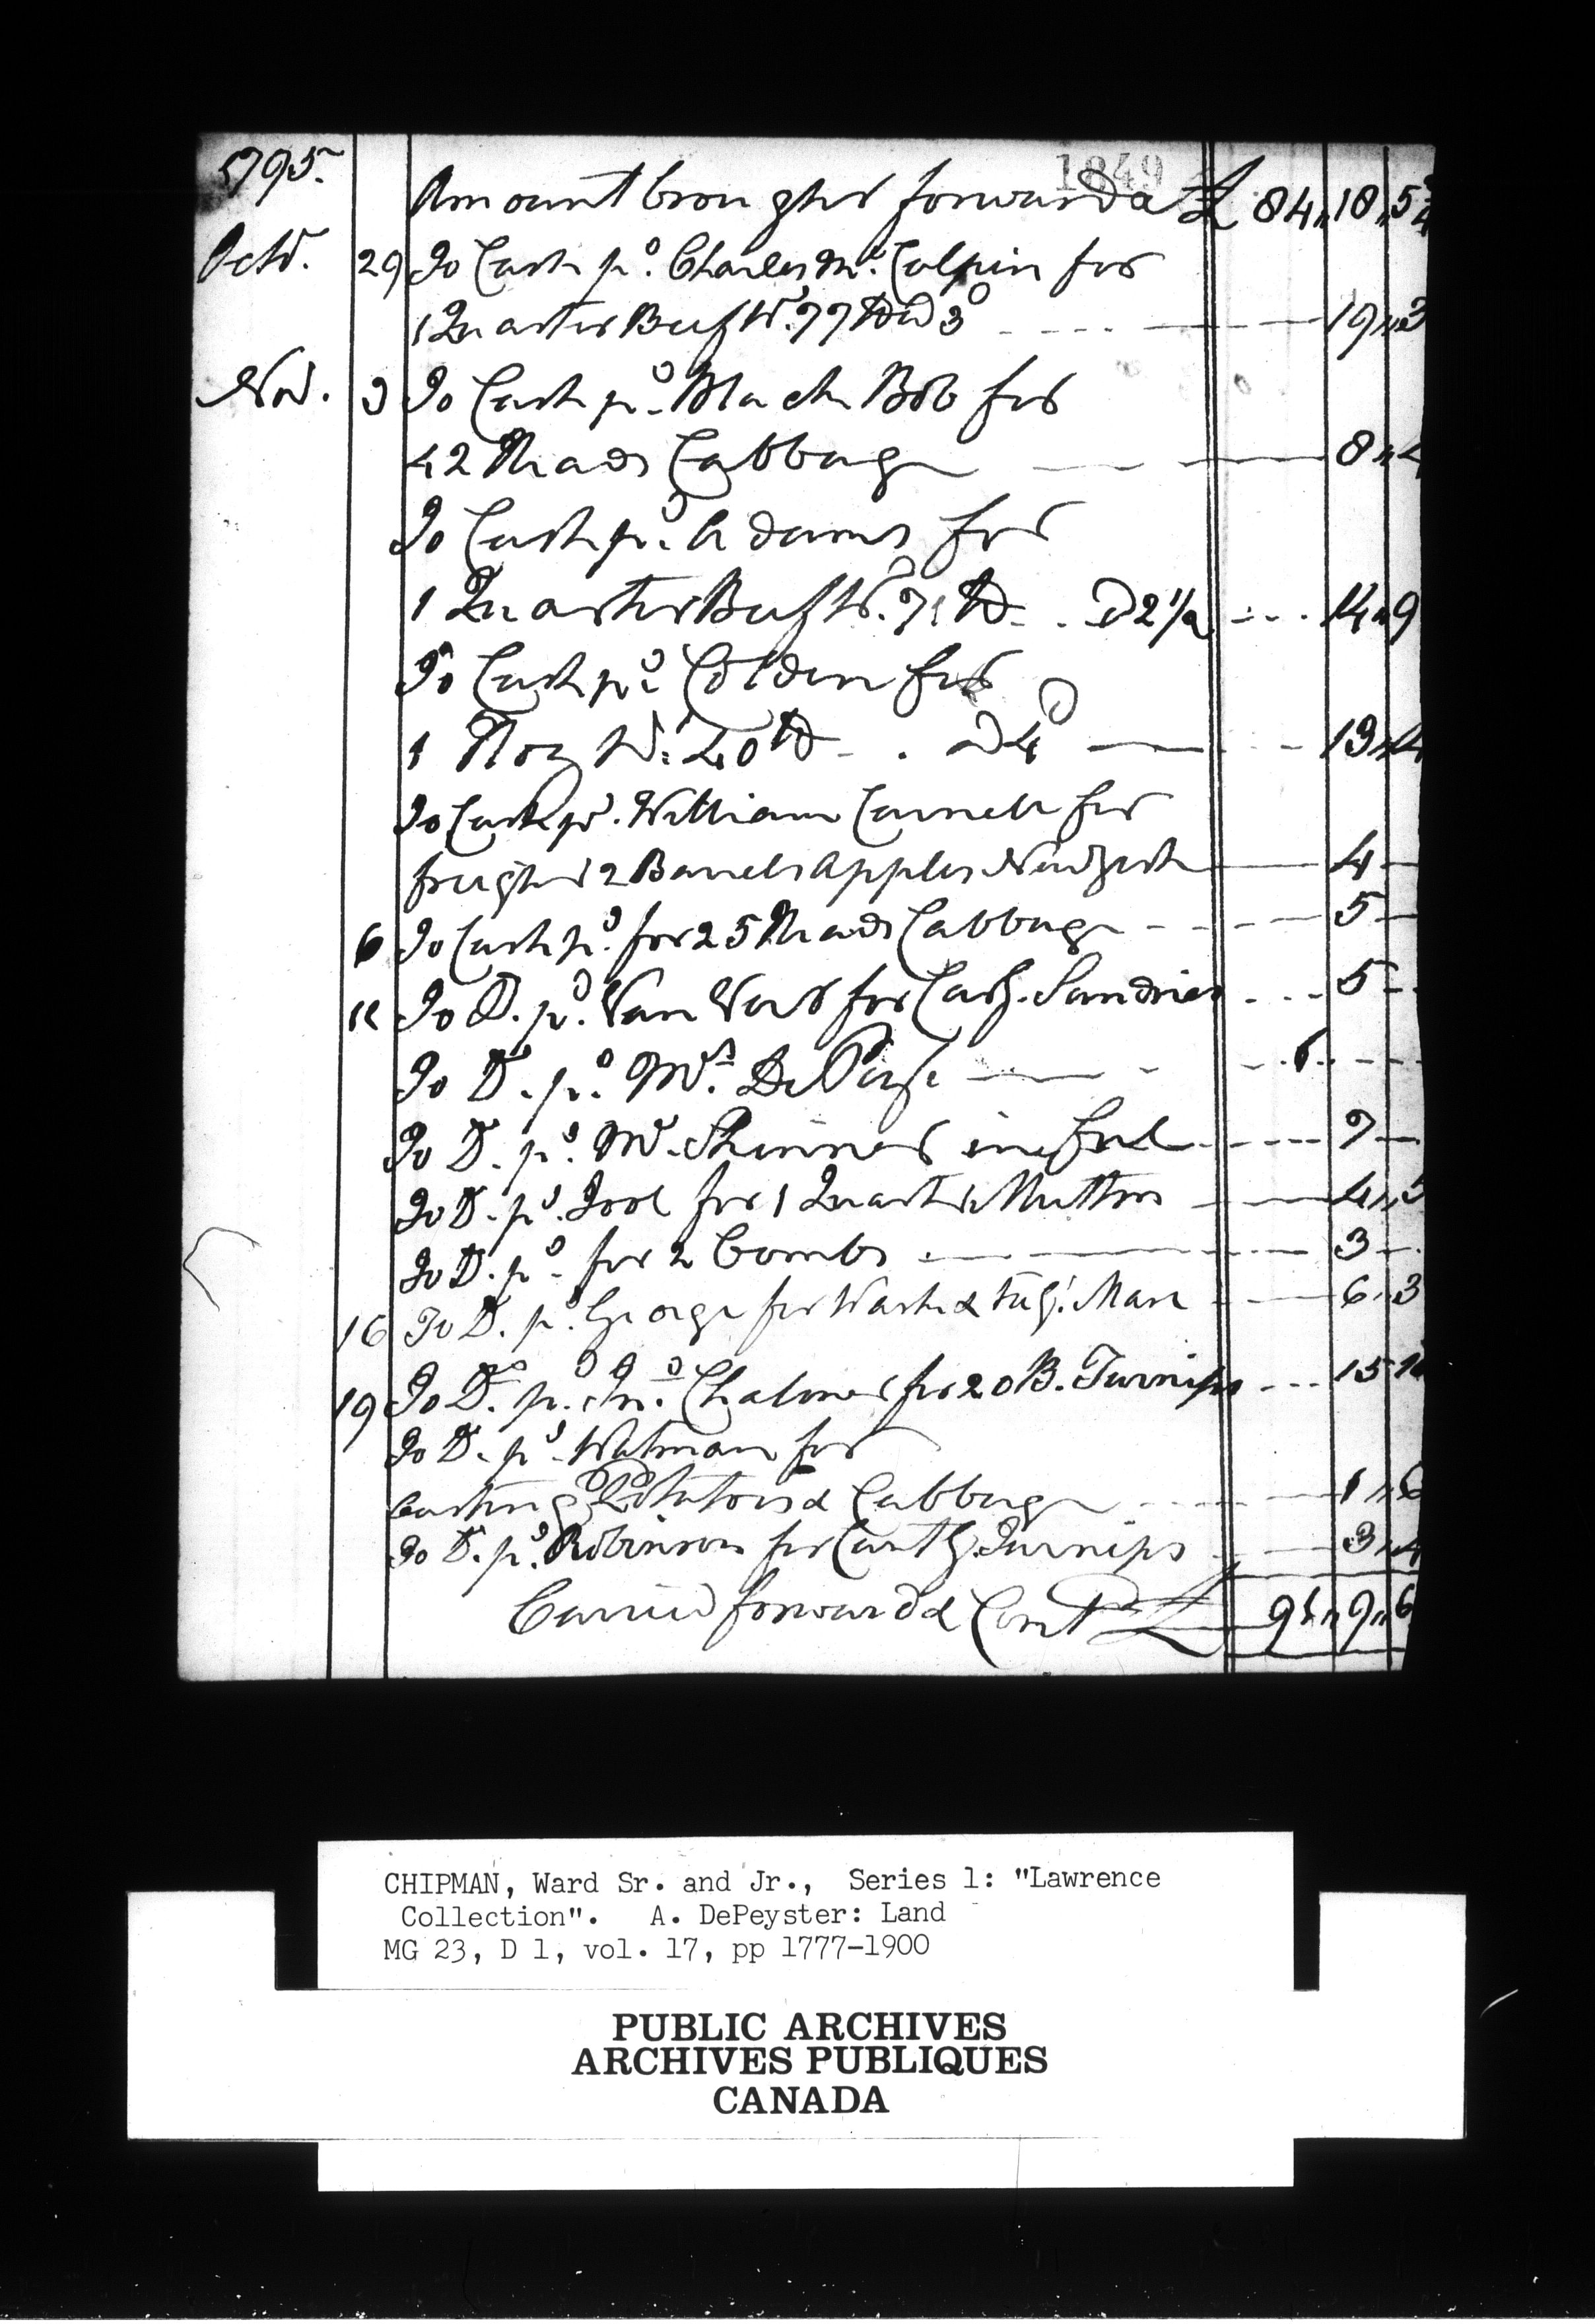 1795.
1849
Amount brought forward a £ 84,, 18,, 5 3/4
Octr. 29 To Cash pd. Charles Mc. Calpin for
1 Quarter Beef Wt. 77 lb @ 3d 19,, 3
Nov. 3 To Cash pd. Black Bob for
42 Heads Cabbage 8,, 4
To Cash pd. Adams for
1 Quarter Beef Wt. 71 lb @ 2 1/2 14,, 9
To Cash pd. Colden for
1 Hog Wt. 40 lb @ 4d 13,, 4
To Cash pd. William for
freight 2 Barrels Apples 4
6 To Cash pd. for 25 Heads Cabbage 5
To D. pd. Van for Sundries 5
To D. pd. Mr.
To D. pd. Mr. Skinner in full 7
To D. pd. for 1 Quarter Mutton 4,,
To D. pd. for 2 Combs 3
16 To D. pd. George for Wash & Mare 6,, 3
19 To Do. pd. Jno. Chaloner for 20 B. Turnips 15
To D. pd. Watman for
Carting Potatoes & Cabbage 1,, 6
To D. pd. Robinson for Turnips 3,, 4
Carried forward & Cont £ 9,, 6
CHIPMAN, Ward Sr. and Jr., Series 1: "Lawrence
Collection". A. DePeyster: Land
MG 23, D 1, vol. 17, pp 1777-1900
PUBLIC ARCHIVES
ARCHIVES PUBLIQUES
CANADA